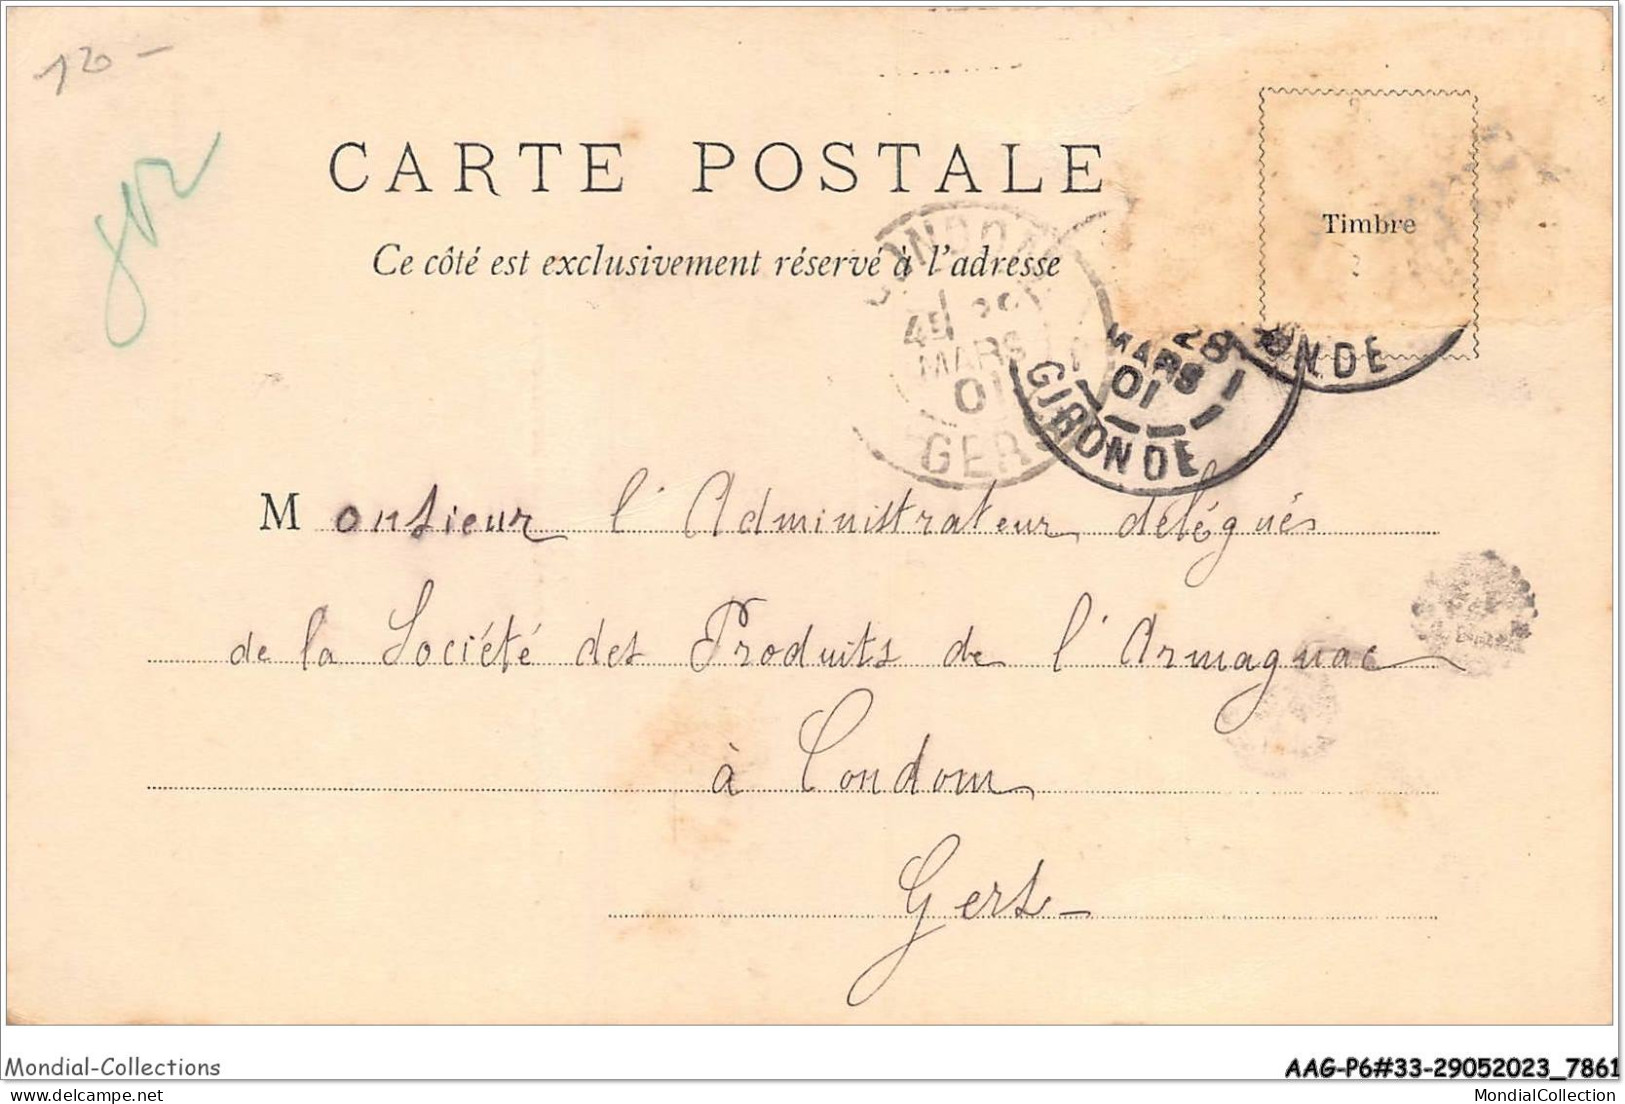 120 -
CARTE POSTALE
Ce côté est exclusivement réservé à l'adresse
Timbre
CONDOM
MARS
01
GERS
28
MARS
01
GIRONDE
ONDE
Monsieur l'Administrateur délégués
de la Société des Produits de l'Armagnac
à Condom
Gers -
Mondial-Collections
AAG-P6#33-29052023_7861
delcampe.net
MondialCollection